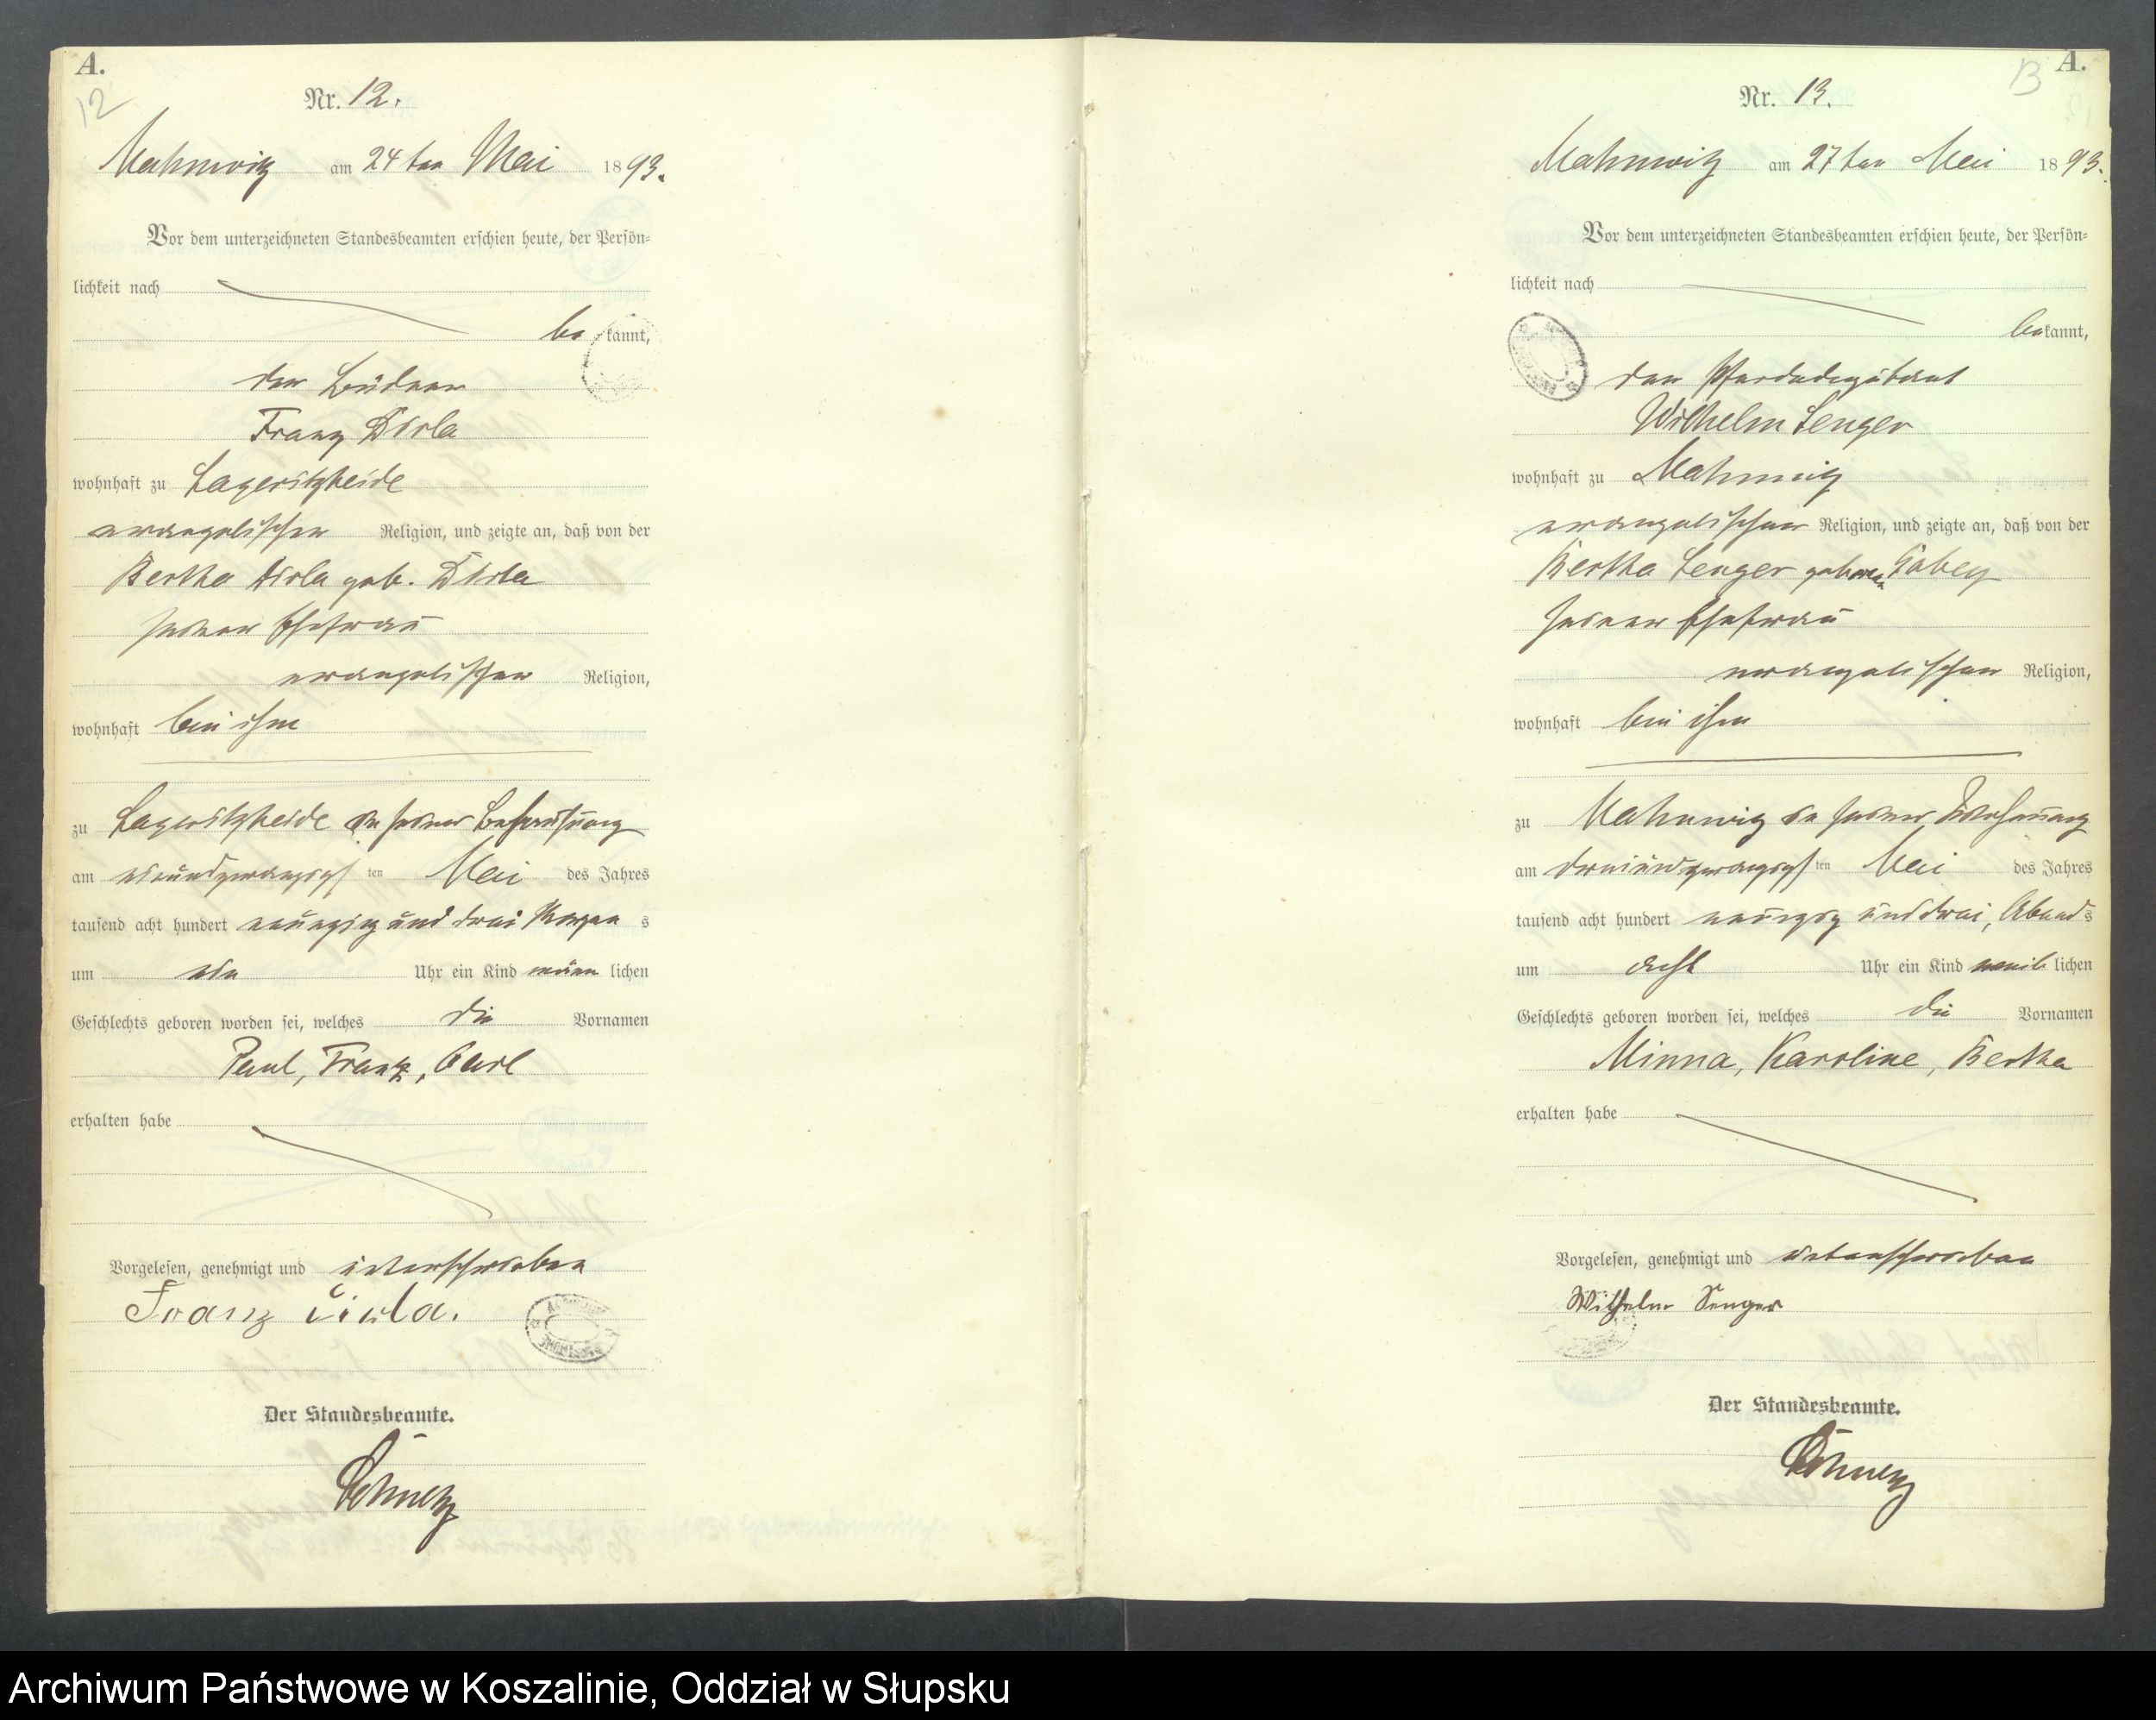 A.
12
Nr. 12.
Mahnwitz am 24ten Mai 1893.
Vor dem unterzeichneten Standesbeamten erschien heute, der Persön=
lichkeit nach
bekannt,
der Büdner
Franz
wohnhaft zu Lageritzheide
evangelischer Religion, und zeigte an, daß von der
Bertha geb.
seiner Ehefrau
evangelischer Religion,
wohnhaft bei ihm
zu Lageritzheide in seiner Behausung
am einundzwanzigsten Mai des Jahres
tausend acht hundert neunzig und drei Morgens
um ein Uhr ein Kind männlichen
Geschlechts geboren worden sei, welches die Vornamen
Paul, Franz, Carl
erhalten habe
Vorgelesen, genehmigt und unterschrieben
Franz
Der Standesbeamte.
A.
13
Nr. 13.
Mahnwitz am 27ten Mai 1893.
Vor dem unterzeichneten Standesbeamten erschien heute, der Persön=
lichkeit nach
bekannt,
der
Wilhelm Senger
wohnhaft zu Mahnwitz
evangelischer Religion, und zeigte an, daß von der
Bertha Senger geboren
seiner Ehefrau
evangelischer Religion,
wohnhaft bei ihm
zu Mahnwitz in seiner Wohnung
am dreiundzwanzigsten Mai des Jahres
tausend acht hundert neunzig und drei, Abends
um acht Uhr ein Kind weiblichen
Geschlechts geboren worden sei, welches die Vornamen
Minna, Karoline, Bertha
erhalten habe
Vorgelesen, genehmigt und unterschrieben
Wilhelm Senger
Der Standesbeamte.
Archiwum Państwowe w Koszalinie, Oddział w Słupsku